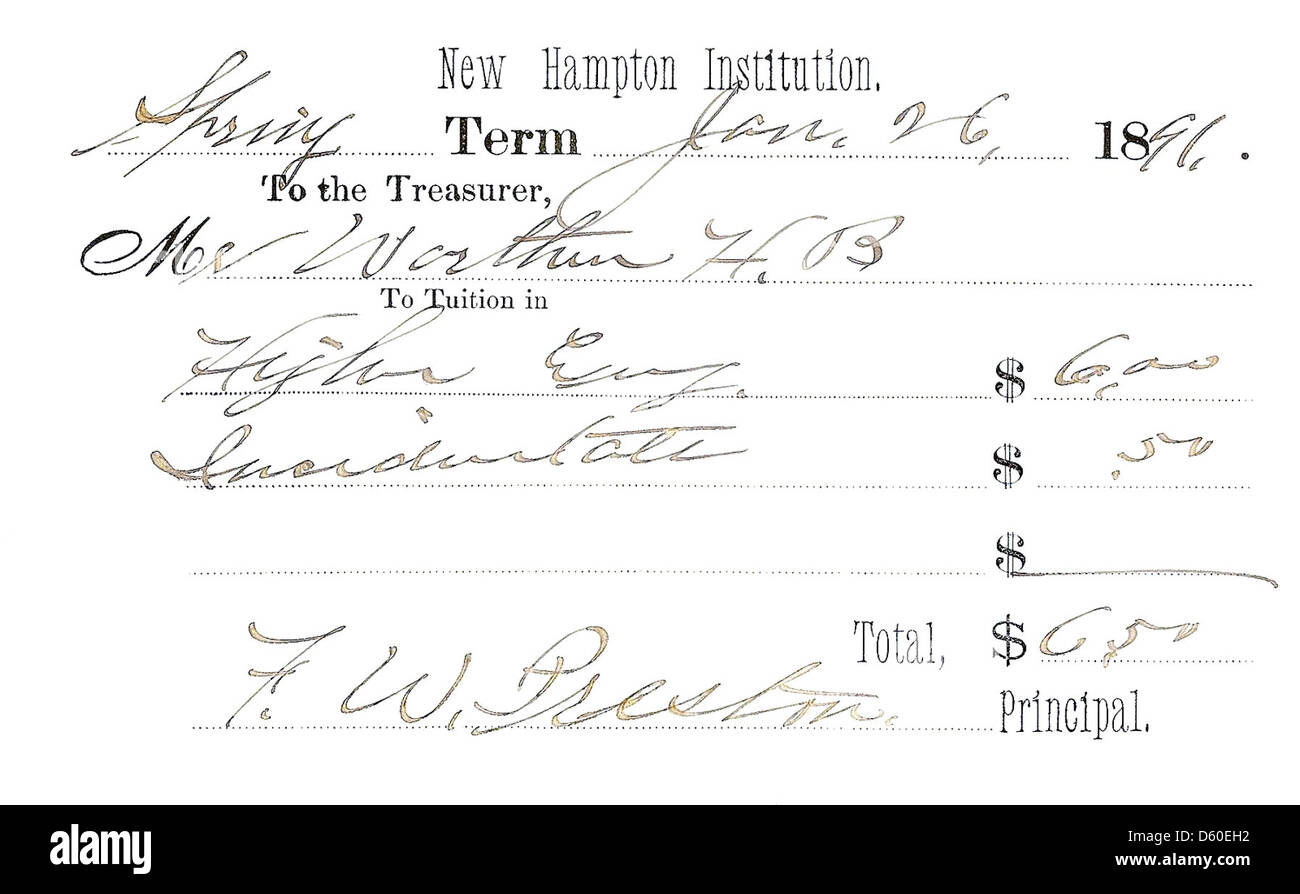 New Hampton Institution.
Spring Term Jan. 26, 1891. .
To the Treasurer,
Mr Worthen H. B
To Tuition in
Higher Eng. $ 6,00
Incidentals $ .50
$
Total, $ 6,50
F. W. Preston. Principal.
alamy
Image ID: D60EH2
www.alamy.com